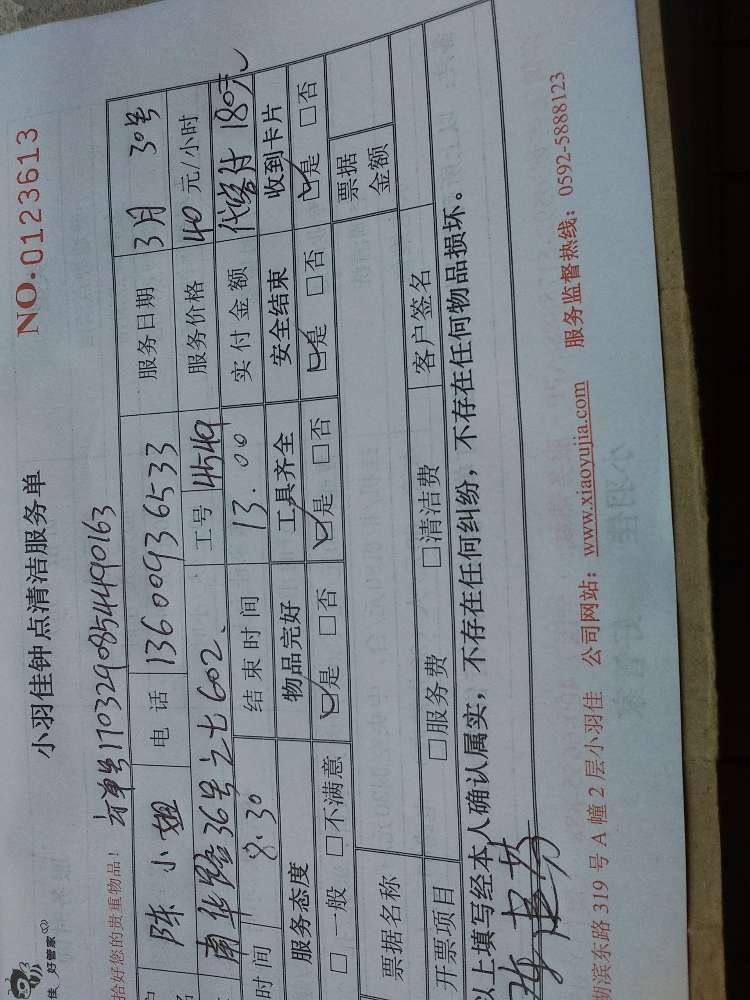 小羽佳钟点清洁服务单
NO.0123613
佳 好管家
拾好您的贵重物品! 订单号1703290854490163
陈小姐 电话 13600936533 服务日期 3月30号
南华路36号之七602、 工号 4549 服务价格 40元/小时
时间 8.30 结束时间 13.00 实付金额 代客付 180元
服务态度 物品完好 工具齐全 安全结束 收到卡片
□一般 □不满意 ☑是 □否 ☑是 □否 ☑是 □否 ☑是 □否
票据名称 票据金额
开票项目 □服务费 □清洁费 客户签名
以上填写经本人确认属实，不存在任何纠纷，不存在任何物品损坏。
湖滨东路319号A幢2层小羽佳 公司网站：www.xiaoyujia.com 服务监督热线：0592-5888123